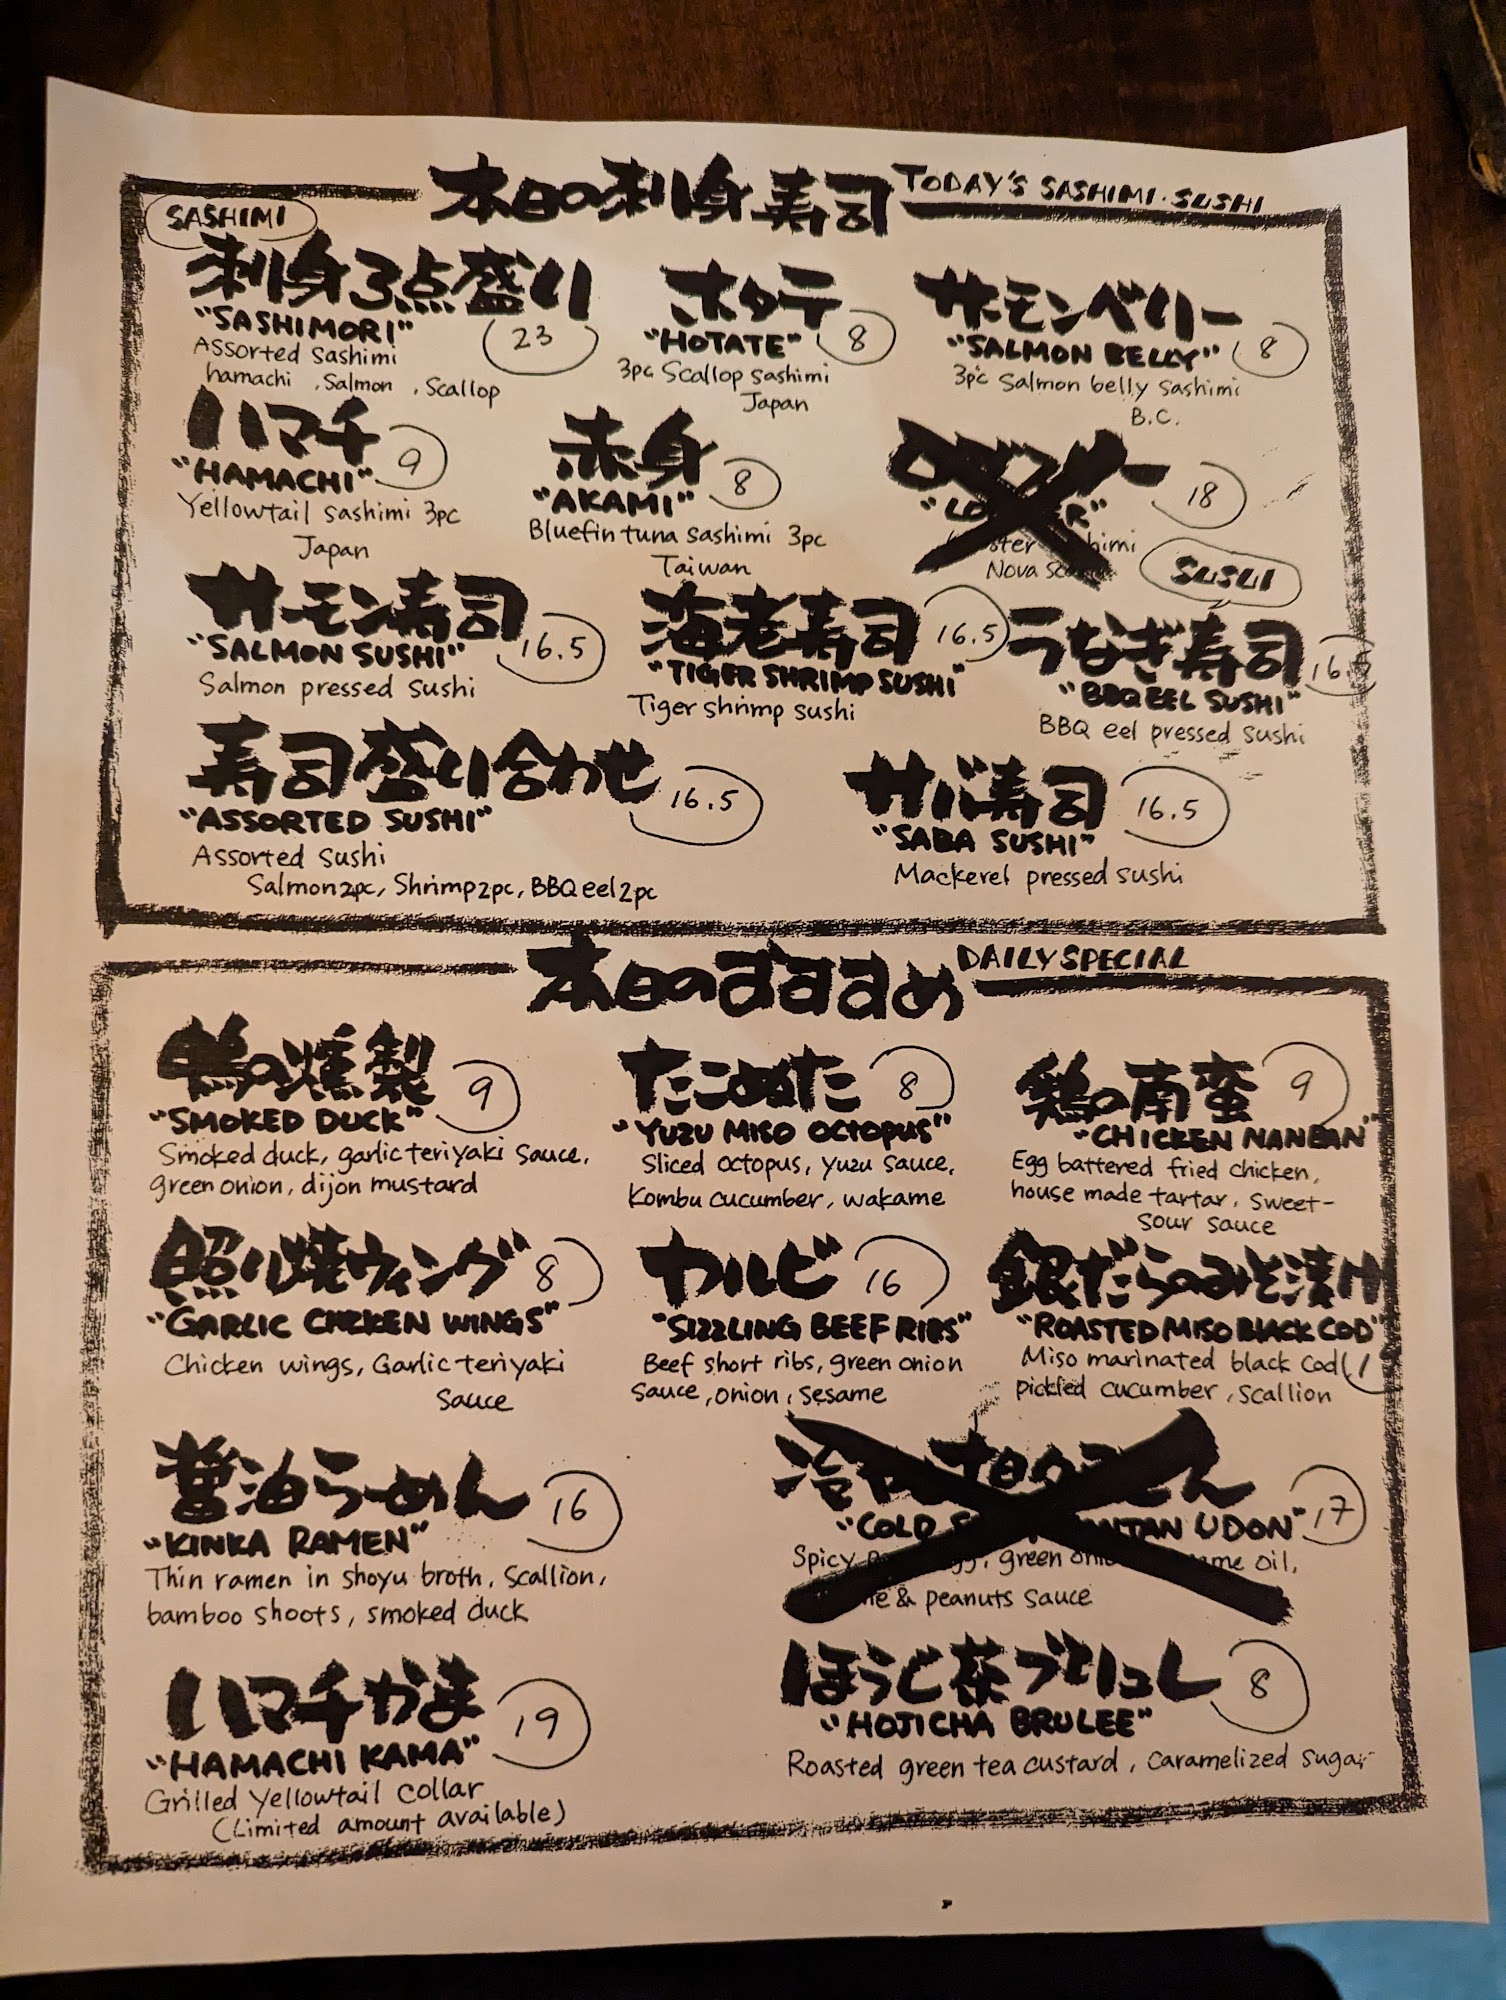 本日の刺身寿司 TODAY'S SASHIMI・SUSHI
SASHIMI
刺身3点盛り
"SASHIMORI" 23
Assorted sashimi
hamachi, Salmon, Scallop
ホタテ
"HOTATE" 8
3pc Scallop sashimi
Japan
サーモンベリー
"SALMON BELLY" 8
3pc Salmon belly sashimi
B.C.
ハマチ
"HAMACHI" 9
Yellowtail sashimi 3pc
Japan
赤身
"AKAMI" 8
Bluefin tuna sashimi 3pc
Taiwan
18
Nova
SUSUI
サーモン寿司
"SALMON SUSHI" 16.5
Salmon pressed sushi
海老寿司 16.5
"TIGER SHRIMP SUSHI"
Tiger shrimp sushi
うなぎ寿司 16.5
"BBQ EEL SUSHI"
BBQ eel pressed sushi
寿司盛り合わせ 16.5
"ASSORTED SUSHI"
Assorted sushi
Salmon2pc, Shrimp2pc, BBQ eel2pc
サバ寿司 16.5
"SABA SUSHI"
Mackerel pressed sushi
本日のおすすめ DAILY SPECIAL
鴨の燻製 9
"SMOKED DUCK"
Smoked duck, garlic teriyaki sauce,
green onion, dijon mustard
たこのぬた 8
"YUZU MISO OCTOPUS"
Sliced octopus, yuzu sauce,
Kombu cucumber, wakame
鶏の南蛮 9
"CHICKEN NANBAN"
Egg battered fried chicken,
house made tartar, sweet-
sour sauce
照り焼ウィング 8
"GARLIC CHICKEN WINGS"
Chicken wings, Garlic teriyaki
sauce
カルビ 16
"SIZZLING BEEF RIBS"
Beef short ribs, green onion
sauce, onion, sesame
銀だらのみそ漬け
"ROASTED MISO BLACK COD"
Miso marinated black cod
pickled cucumber, scallion
醤油らーめん 16
"KINKA RAMEN"
Thin ramen in shoyu broth, scallion,
bamboo shoots, smoked duck
17
"COLD UDON"
Spicy green oil,
& peanuts sauce
ハマチかま 19
"HAMACHI KAMA"
Grilled Yellowtail collar
(Limited amount available)
ほうじ茶ブリュレ 8
"HOJICHA BRULEE"
Roasted green tea custard, caramelized sugar